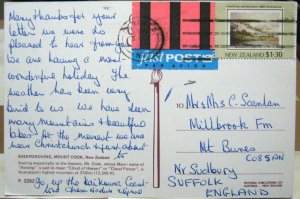 Many thanks for your
letter we were so
pleased to hear from you
We are having a most
wonderful holiday the
weather has been very
kind to us. We have seen
many mountains + beautiful
lakes. At the moment we are
near Christchurch + just about to
SHEEPDROVING, MOUNT COOK, New Zealand
P. 2262
go up the Kaikoura Coast
fast POST
PAR AVION
NEW ZEALAND $1.30
To
Mr & Mrs C. Scanlan
Millbrook Fm
Mt Bures
CO8 5AN
Nr Sudbury
SUFFOLK
ENGLAND